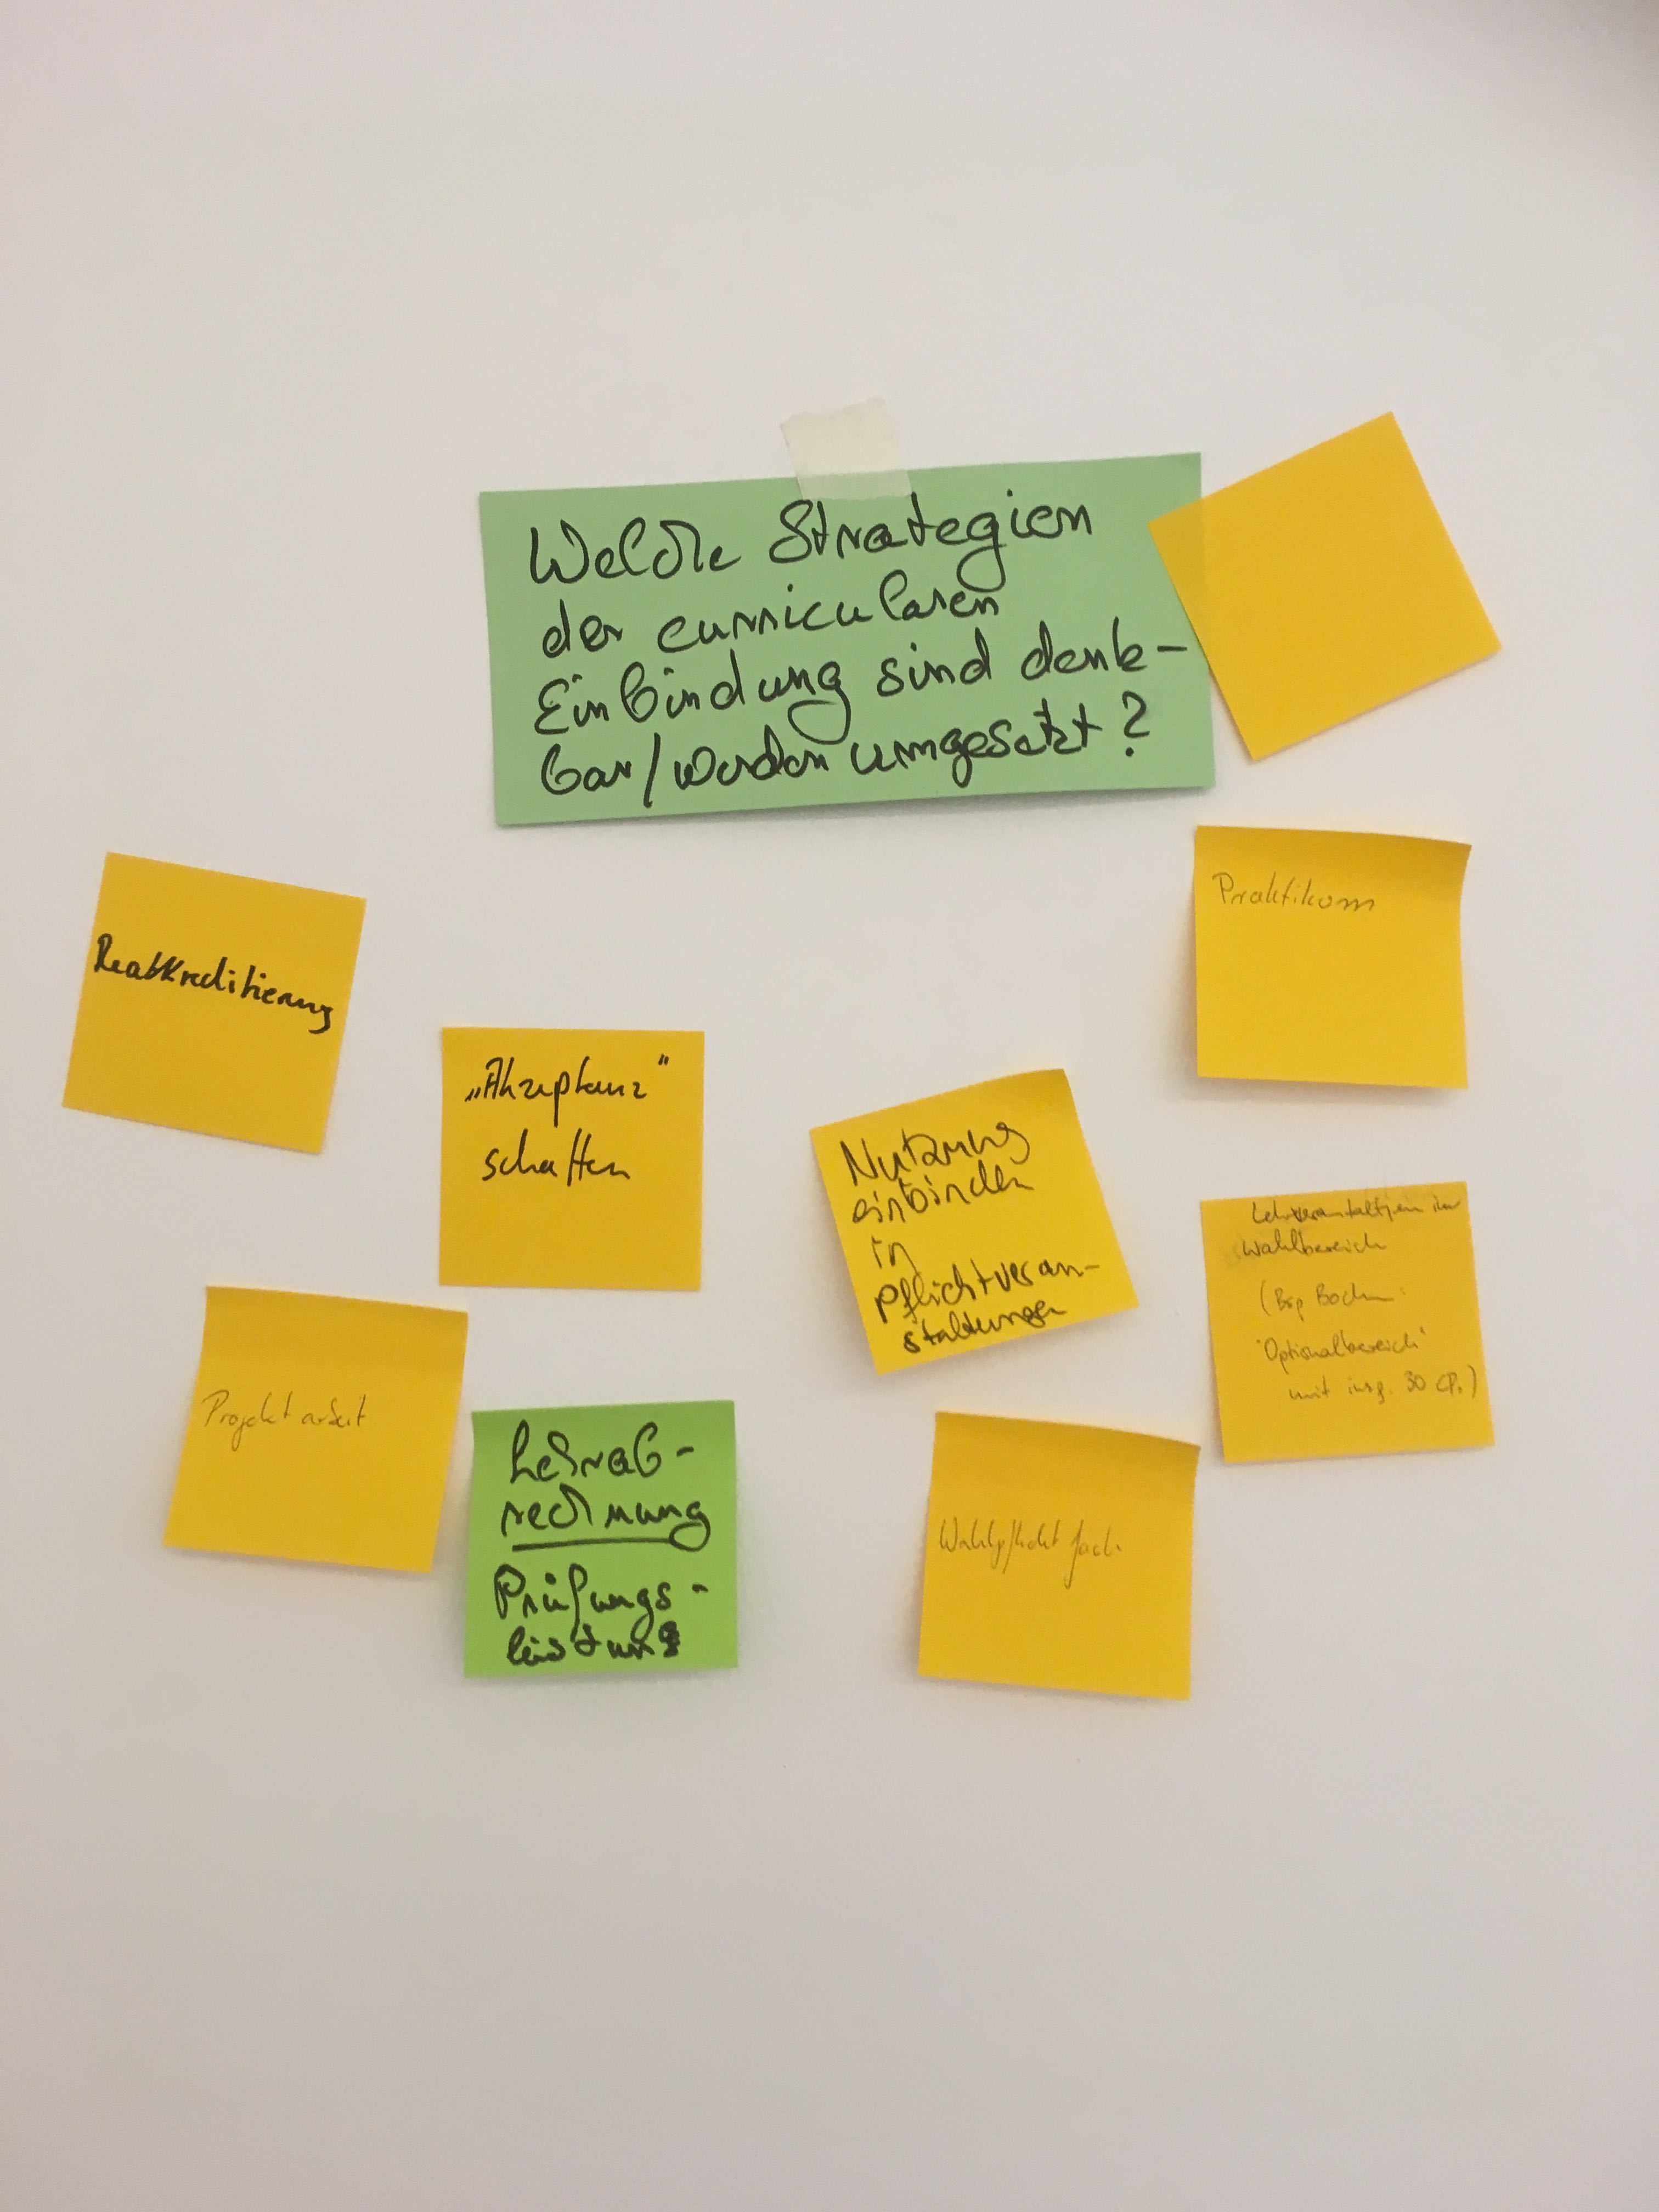 Welche Strategien
der curricularen
Einbindung sind denk-
bar/werden umgesetzt?
Praktikum
Reakkreditierung
„Akzeptanz"
schaffen
Nutzung
einbinden
in
pflichtveran-
staltungen
Lehrveranstaltungen im
Wahlbereich
(Bsp Bochum:
'Optionalbereich'
mit insg. 30 CP.)
Projektarbeit
Lehrab-
rechnung
Prüfungs-
leistung
Wahlpflichtfach